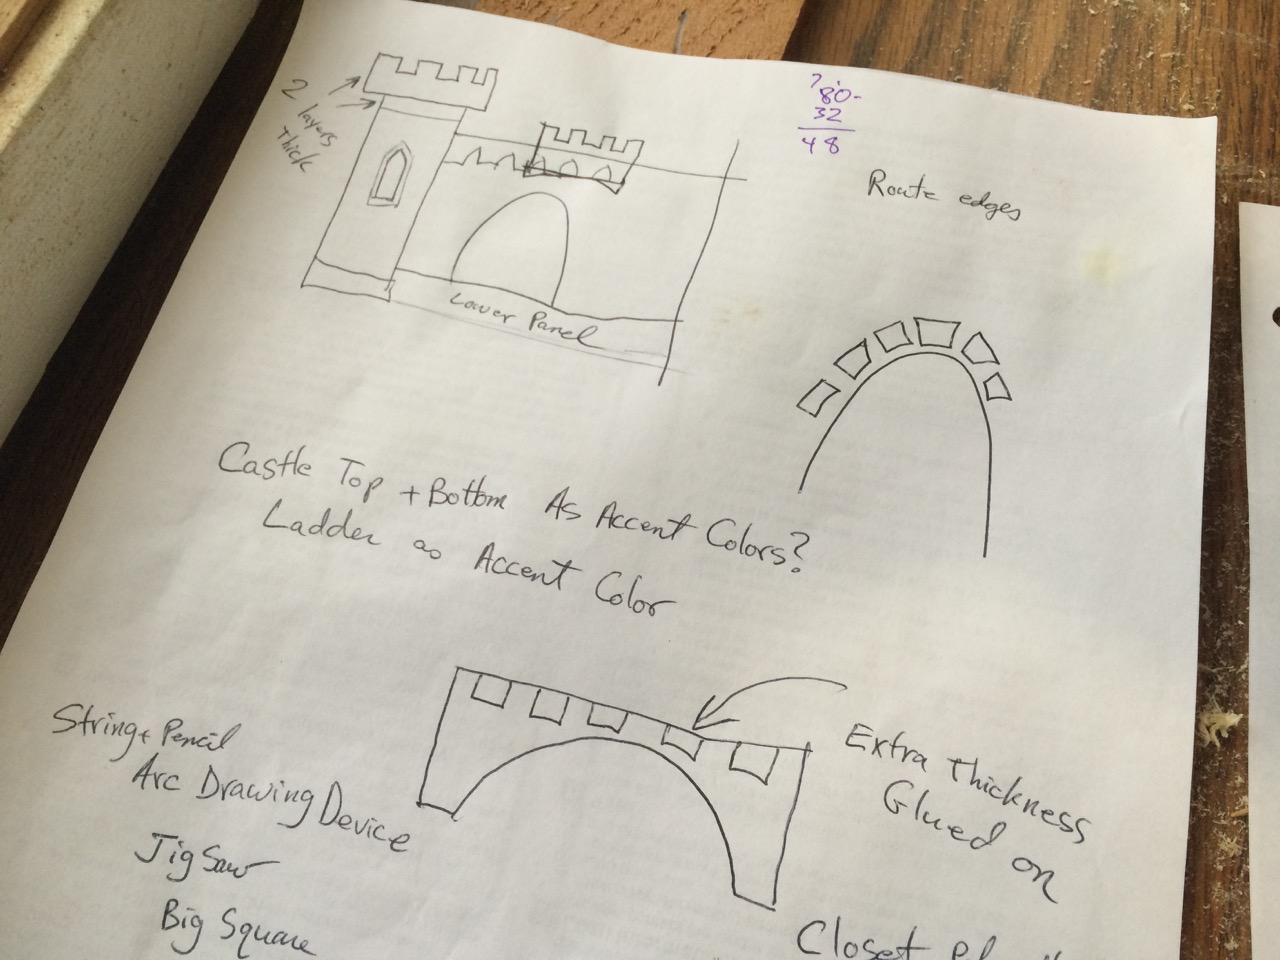 2
layers
Thick
7
80-
32
48
Route edges
Lower Panel
Castle Top + Bottom As Accent Colors?
Ladder as Accent Color
String + Pencil
Arc Drawing Device
Jig Saw
Big Square
Extra Thickness
Glued on
Closet